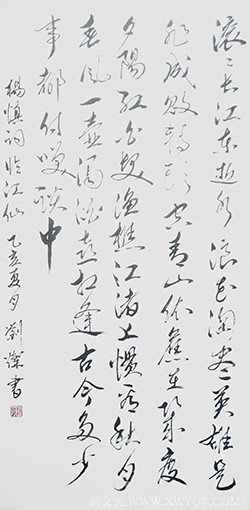 滚々长江东逝水浪花淘尽英雄是
非成败转头空青山依旧在几度
夕阳红白发渔樵江渚上惯看秋月
春风一壶浊酒喜相逢古今多少
事都付笑谈中
楊慎词临江仙 乙亥夏月 劉 書